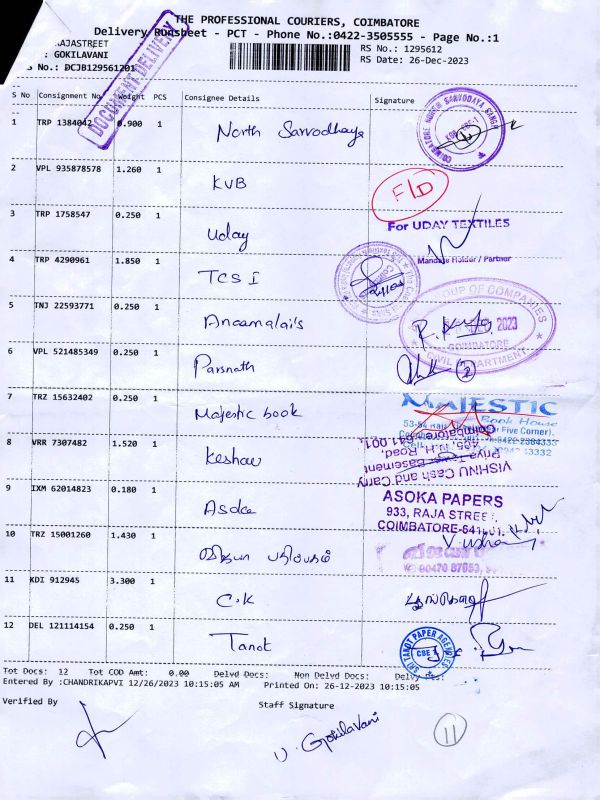 THE PROFESSIONAL COURIERS, COIMBATORE
Delivery Runsheet - PCT - Phone No.:0422-3505555 - Page No.:1
RAJASTREET
: GOKILAVANI
S No.: DCJB129561201
RS No.: 1295612
RS Date: 26-Dec-2023
DOCUMENT DELIVERY
S No Consignment No Weight PCS Consignee Details Signature
1 TRP 1384042 0.900 1 North Sarvodhaya
COIMBATORE NORTH SARVODAYA SANGH
2 VPL 935878578 1.260 1 KVB
F/D
3 TRP 1758547 0.250 1 Uday
For UDAY TEXTILES
Mandate Holder / Partner
4 TRP 4290961 1.850 1 TCS I
5 TNJ 22593771 0.250 1 Annamalai's
GROUP OF COMPANIES
2023
COIMBATORE
CIVIL DEPARTMENT
6 VPL 521485349 0.250 1 Parsnath
7 TRZ 15632402 0.250 1 Majestic book
MAJESTIC
Book House
Five Corner).
8 VRR 7307482 1.520 1 Keshav
VISHNU Cash and Carry
Priya Basement
Coimbatore-641 001.
9 IXM 62014823 0.180 1 Asoka
ASOKA PAPERS
933, RAJA STREET,
COIMBATORE-641001.
10 TRZ 15001260 1.430 1 வித்யா பதிப்பகம்
11 KDI 912945 3.300 1 C.K
12 DEL 121114154 0.250 1 Tanot
SRI TANOT PAPER AGENCIES
CBE
Tot Docs: 12 Tot COD Amt: 0.00 Delvd Docs: Non Delvd Docs: Delvy Pcs:
Entered By :CHANDRIKAPVI 12/26/2023 10:15:05 AM Printed On: 26-12-2023 10:15:05
Verified By
Staff Signature
V. Gokilavani
11